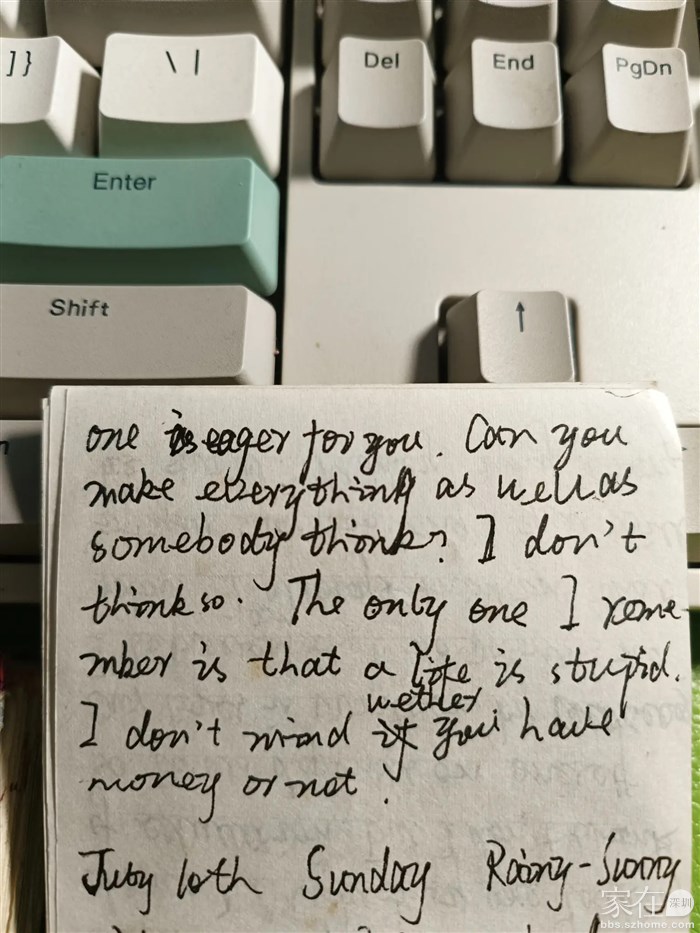 ]}
\|
Del
End
PgDn
Enter
Shift
↑
one is eager for you. Can you
make everything as well as
somebody think? I don't
think so. The only one I reme-
mber is that a life is stupid.
wether
I don't mind if you have
money or not.
July 10th Sunday Rainy-Sunny
家在 深圳
bbs.szhome.com